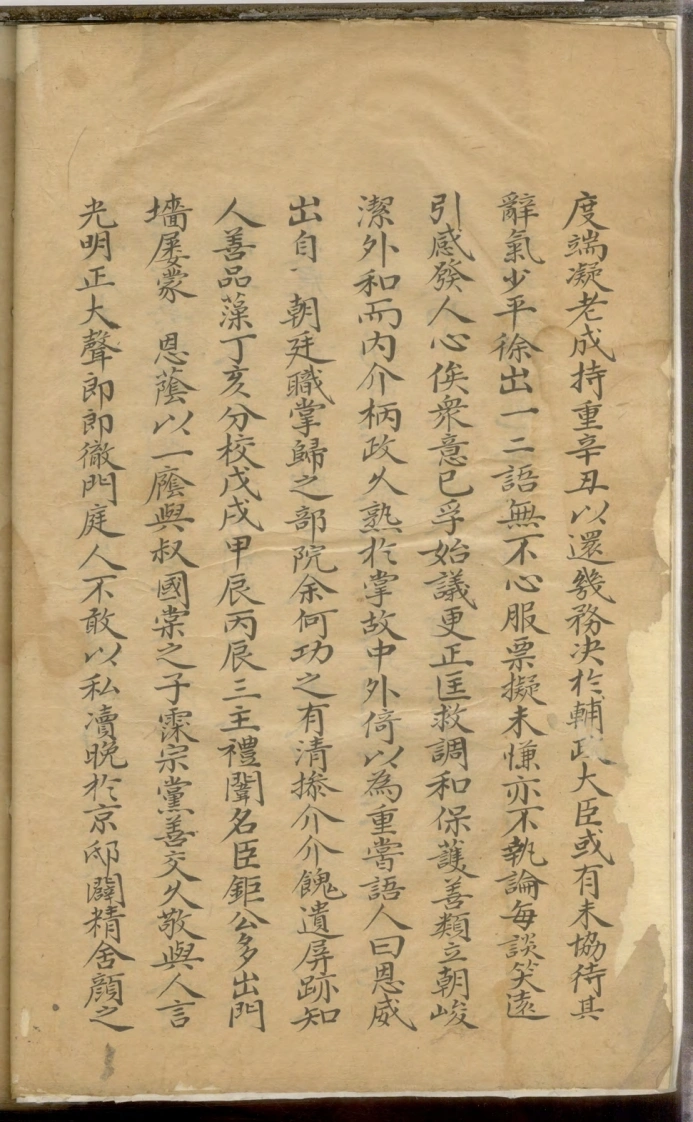 度端凝老成持重辛丑以還幾務決於輔政大臣或有未協待其
辭氣少平徐出一二語無不心服票擬未慊亦不執論每談笑遠
引感發人心俟衆意已孚始議更正匡救調和保護善類立朝峻
潔外和而內介柄政久熟於掌故中外倚以為重嘗語人曰恩威
出自 朝廷職掌歸之部院余何功之有清操介介餽遺屏跡知
人善品藻丁亥分校戊戌甲辰丙辰三主禮闈名臣鉅公多出門
墻屡蒙 恩蔭以一廕與叔國棠之子霂宗黨善交久敬與人言
光明正大聲郎郎徹門庭人不敢以私凟晚於京邸闢精舍顔之